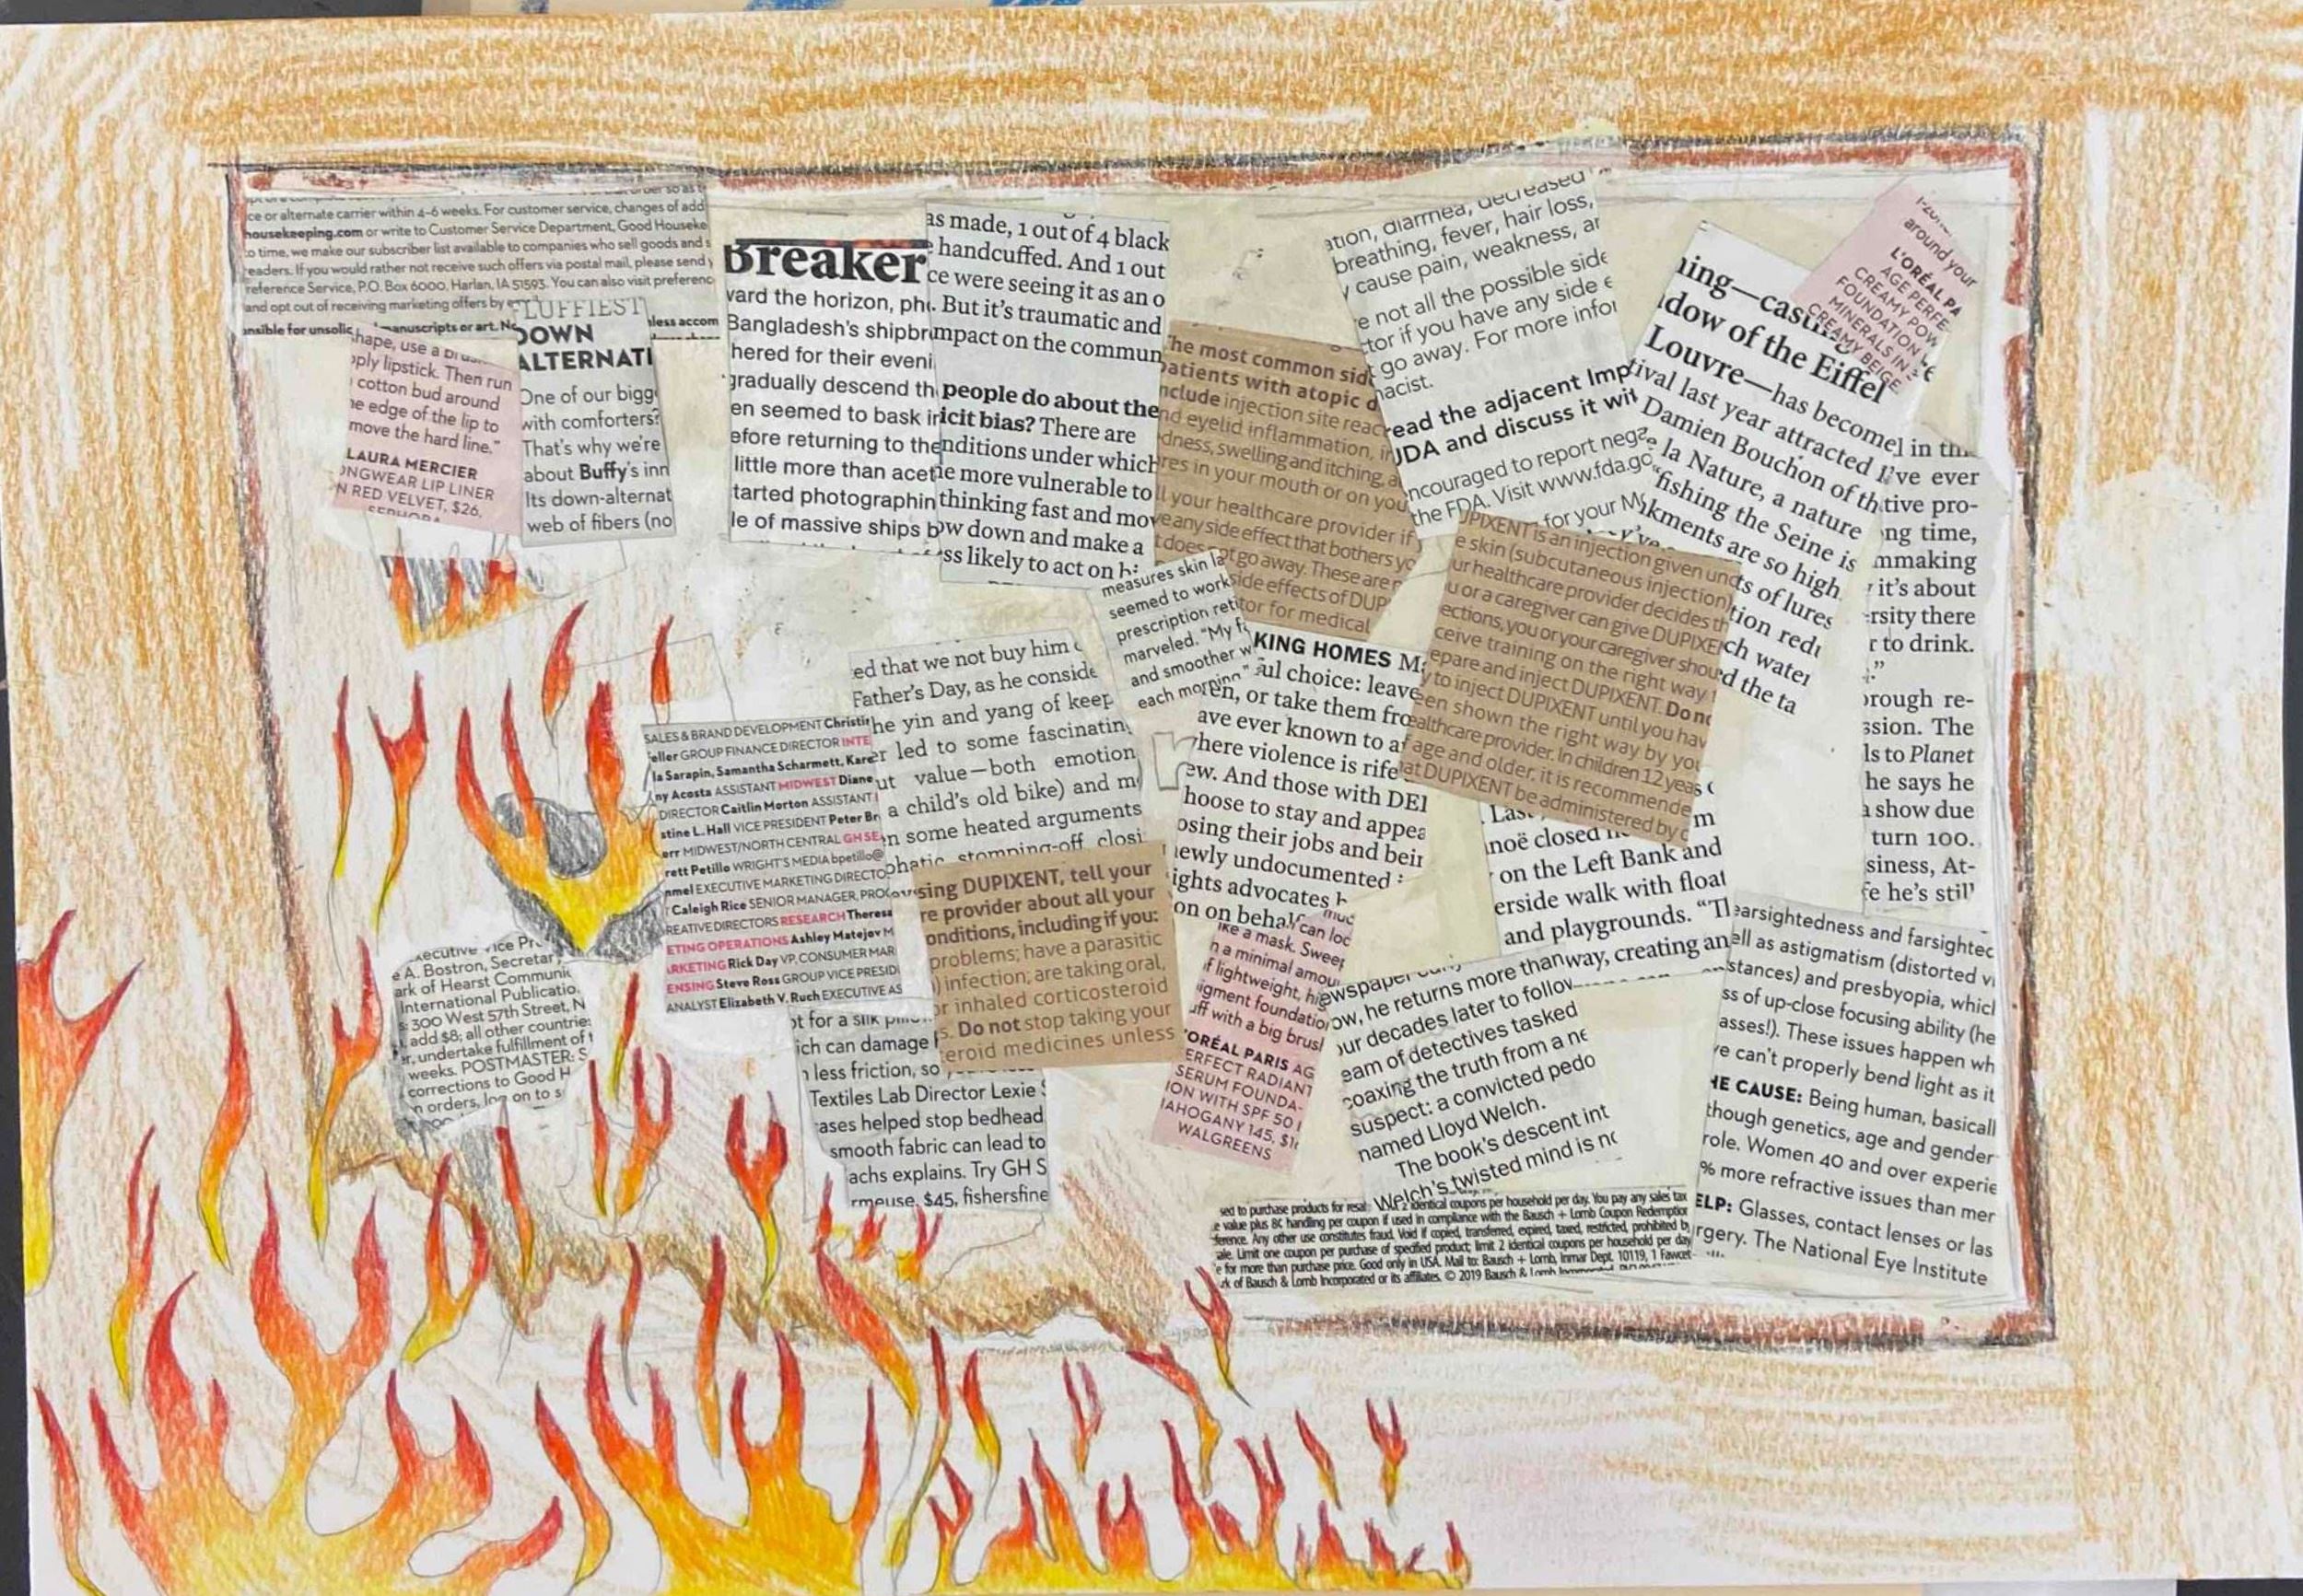 ce or alternate carrier within 4-6 weeks. For customer service, changes of add
housekeeping.com or write to Customer Service Department, Good Houseke
to time, we make our subscriber list available to companies who sell goods and s
eaders. If you would rather not receive such offers via postal mail, please send y
reference Service, P.O. Box 6000, Harlan, IA 51593. You can also visit preferenc
and opt out of receiving marketing offers by e
ansible for unsolic
anuscripts or art. No
less accom
FLUFFIEST
DOWN
ALTERNATI
One of our bigg
with comforters?
That's why we're
about Buffy's inn
Its down-alternat
web of fibers (no
hape, use a brus
ply lipstick. Then run
cotton bud around
e edge of the lip to
move the hard line."
LAURA MERCIER
ONGWEAR LIP LINER
N RED VELVET, $26,
SEPHORA
Breaker
ward the horizon, ph
Bangladesh's shipbr
hered for their eveni
gradually descend th
en seemed to bask i
efore returning to the
little more than ace
tarted photographin
le of massive ships b
as made, 1 out of 4 black
handcuffed. And 1 out
ce were seeing it as an o
. But it's traumatic and
mpact on the commun
people do about the
icit bias? There are
nditions under which
e more vulnerable to
thinking fast and mov
ow down and make a
ss likely to act on bi
he most common side
patients with atopic d
nclude injection site reac
nd eyelid inflammation, in
dness, swelling and itching, a
res in your mouth or on you
ll your healthcare provider if
e any side effect that bothers yo
t does not go away. These are n
side effects of DUP
tor for medical
ation, diarrhea, decreased
breathing, fever, hair loss,
y cause pain, weakness, ar
e not all the possible side
ctor if you have any side e
t go away. For more infor
macist.
ead the adjacent Imp
UDA and discuss it wit
ncouraged to report nega
the FDA. Visit www.fda.go
for your M
ning—casting
dow of the Eiffel
Louvre—has become
tival last year attracted
Damien Bouchon of th
e la Nature, a nature
"fishing the Seine is
nkments are so high
ts of lures
tion redu
ch water
d the ta
around your
L'ORÉAL PA
AGE PERFE
CREAMY POW
FOUNDATION
MINERALS IN
CREAMY BEIGE
l in th
I've ever
tive pro-
ng time,
mmaking
it's about
rsity there
r to drink.
."
orough re-
ssion. The
ls to Planet
he says he
a show due
turn 100.
siness, At-
fe he's still
measures skin la
seemed to work
prescription reti
marveled. "My f
and smoother w
each morning."
UPIXENT is an injection given und
e skin (subcutaneous injection)
ur healthcare provider decides th
u or a caregiver can give DUPIXEN
ections, you or your caregiver shou
ceive training on the right way t
epare and inject DUPIXENT. Do no
y to inject DUPIXENT until you hav
een shown the right way by you
ealthcare provider. In children 12 years
f age and older, it is recommende
at DUPIXENT be administered by c
KING HOMES Ma
ful choice: leave
en, or take them fro
ave ever known to a
here violence is rife
ew. And those with DE
hoose to stay and appea
osing their jobs and bein
newly undocumented
ights advocates h
on on behalf
ed that we not buy him
Father's Day, as he conside
he yin and yang of keep
r led to some fascinating
ut value—both emotion
a child's old bike) and m
n some heated arguments
phatic, stomping-off, closi
SALES & BRAND DEVELOPMENT Christin
eller GROUP FINANCE DIRECTOR INTE
la Sarapin, Samantha Scharmett, Kare
ny Acosta ASSISTANT MIDWEST Diane
DIRECTOR Caitlin Morton ASSISTANT
stine L. Hall VICE PRESIDENT Peter Br
err MIDWEST/NORTH CENTRAL GH SE
rett Petillo WRIGHT'S MEDIA bpetillo@
mmel EXECUTIVE MARKETING DIRECTO
Caleigh Rice SENIOR MANAGER, PRO
REATIVE DIRECTORS RESEARCH Theresa
ETING OPERATIONS Ashley Matejov M
ARKETING Rick Day VP, CONSUMER MAR
ENSING Steve Ross GROUP VICE PRESID
ANALYST Elizabeth V. Ruch EXECUTIVE AS
sing DUPIXENT, tell your
re provider about all your
onditions, including if you:
problems; have a parasitic
) infection; are taking oral,
or inhaled corticosteroid
s. Do not stop taking your
teroid medicines unless
xecutive Vice Pr
e A. Bostron, Secretary
ark of Hearst Communic
International Publicatio
s: 300 West 57th Street, N
, add $8; all other countries
r, undertake fulfillment of
weeks. POSTMASTER: S
corrections to Good H
n orders, log on to s
ot for a silk
ich can damage
n less friction, so
Textiles Lab Director Lexie S
ases helped stop bedhead
smooth fabric can lead to
achs explains. Try GH S
rmeuse, $45, fishersfine
can loc
like a mask. Sweep
n a minimal amou
f lightweight, hig
igment foundation
uff with a big brush
'ORÉAL PARIS AG
ERFECT RADIANT
SERUM FOUNDA-
ION WITH SPF 50 I
AHOGANY 145, $1
WALGREENS
noë closed
on the Left Bank and
erside walk with float
and playgrounds. "Tl
way, creating an
ewspaper
ow, he returns more than
our decades later to follow
eam of detectives tasked
coaxing the truth from a ne
suspect: a convicted pedo
named Lloyd Welch.
The book's descent int
Welch's twisted mind is no
earsightedness and farsighted
ell as astigmatism (distorted vi
stances) and presbyopia, which
ss of up-close focusing ability (he
asses!). These issues happen wh
e can't properly bend light as it
HE CAUSE: Being human, basicall
though genetics, age and gender
role. Women 40 and over experie
% more refractive issues than mer
ELP: Glasses, contact lenses or las
rgery. The National Eye Institute
sed to purchase products for resal
2 identical coupons per household per day. You pay any sales tax
e value plus 8¢ handling per coupon if used in compliance with the Bausch + Lomb Coupon Redemption
ference. Any other use constitutes fraud. Void if copied, transferred, expired, taxed, restricted, prohibited b
ale. Limit one coupon per purchase of specified product; limit 2 identical coupons per household per day
e for more than purchase price. Good only in USA. Mail to: Bausch + Lomb, Inmar Dept. 10119, 1 Fawcet
rk of Bausch & Lomb Incorporated or its affiliates. © 2019 Bausch & Lomb